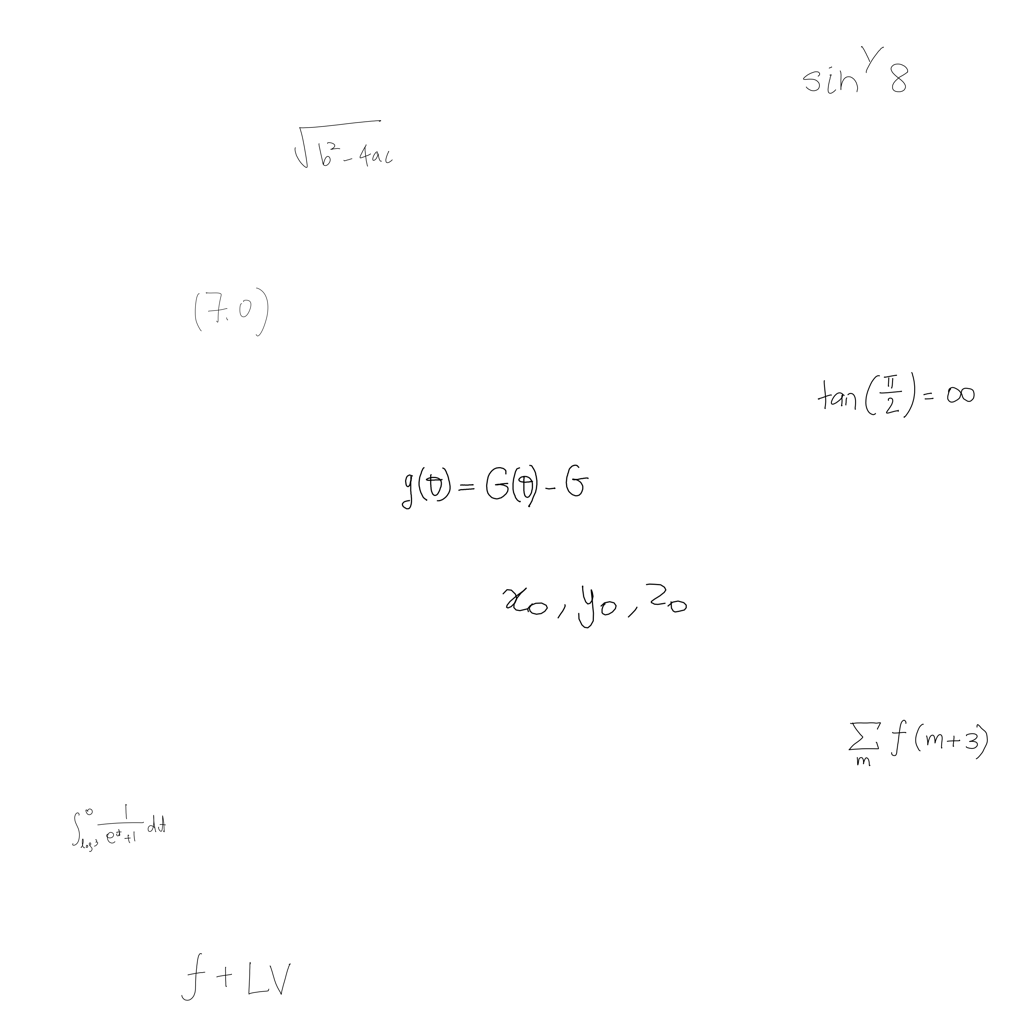 sin^γ 8
√(b² - 4ac)
(7.0)
tan(π/2) = ∞
g(θ) = G(θ) - G
x₀, y₀, z₀
∑_m f(m+3)
∫_{log 3}^{0} 1/(e^t + 1) dt
f + LV